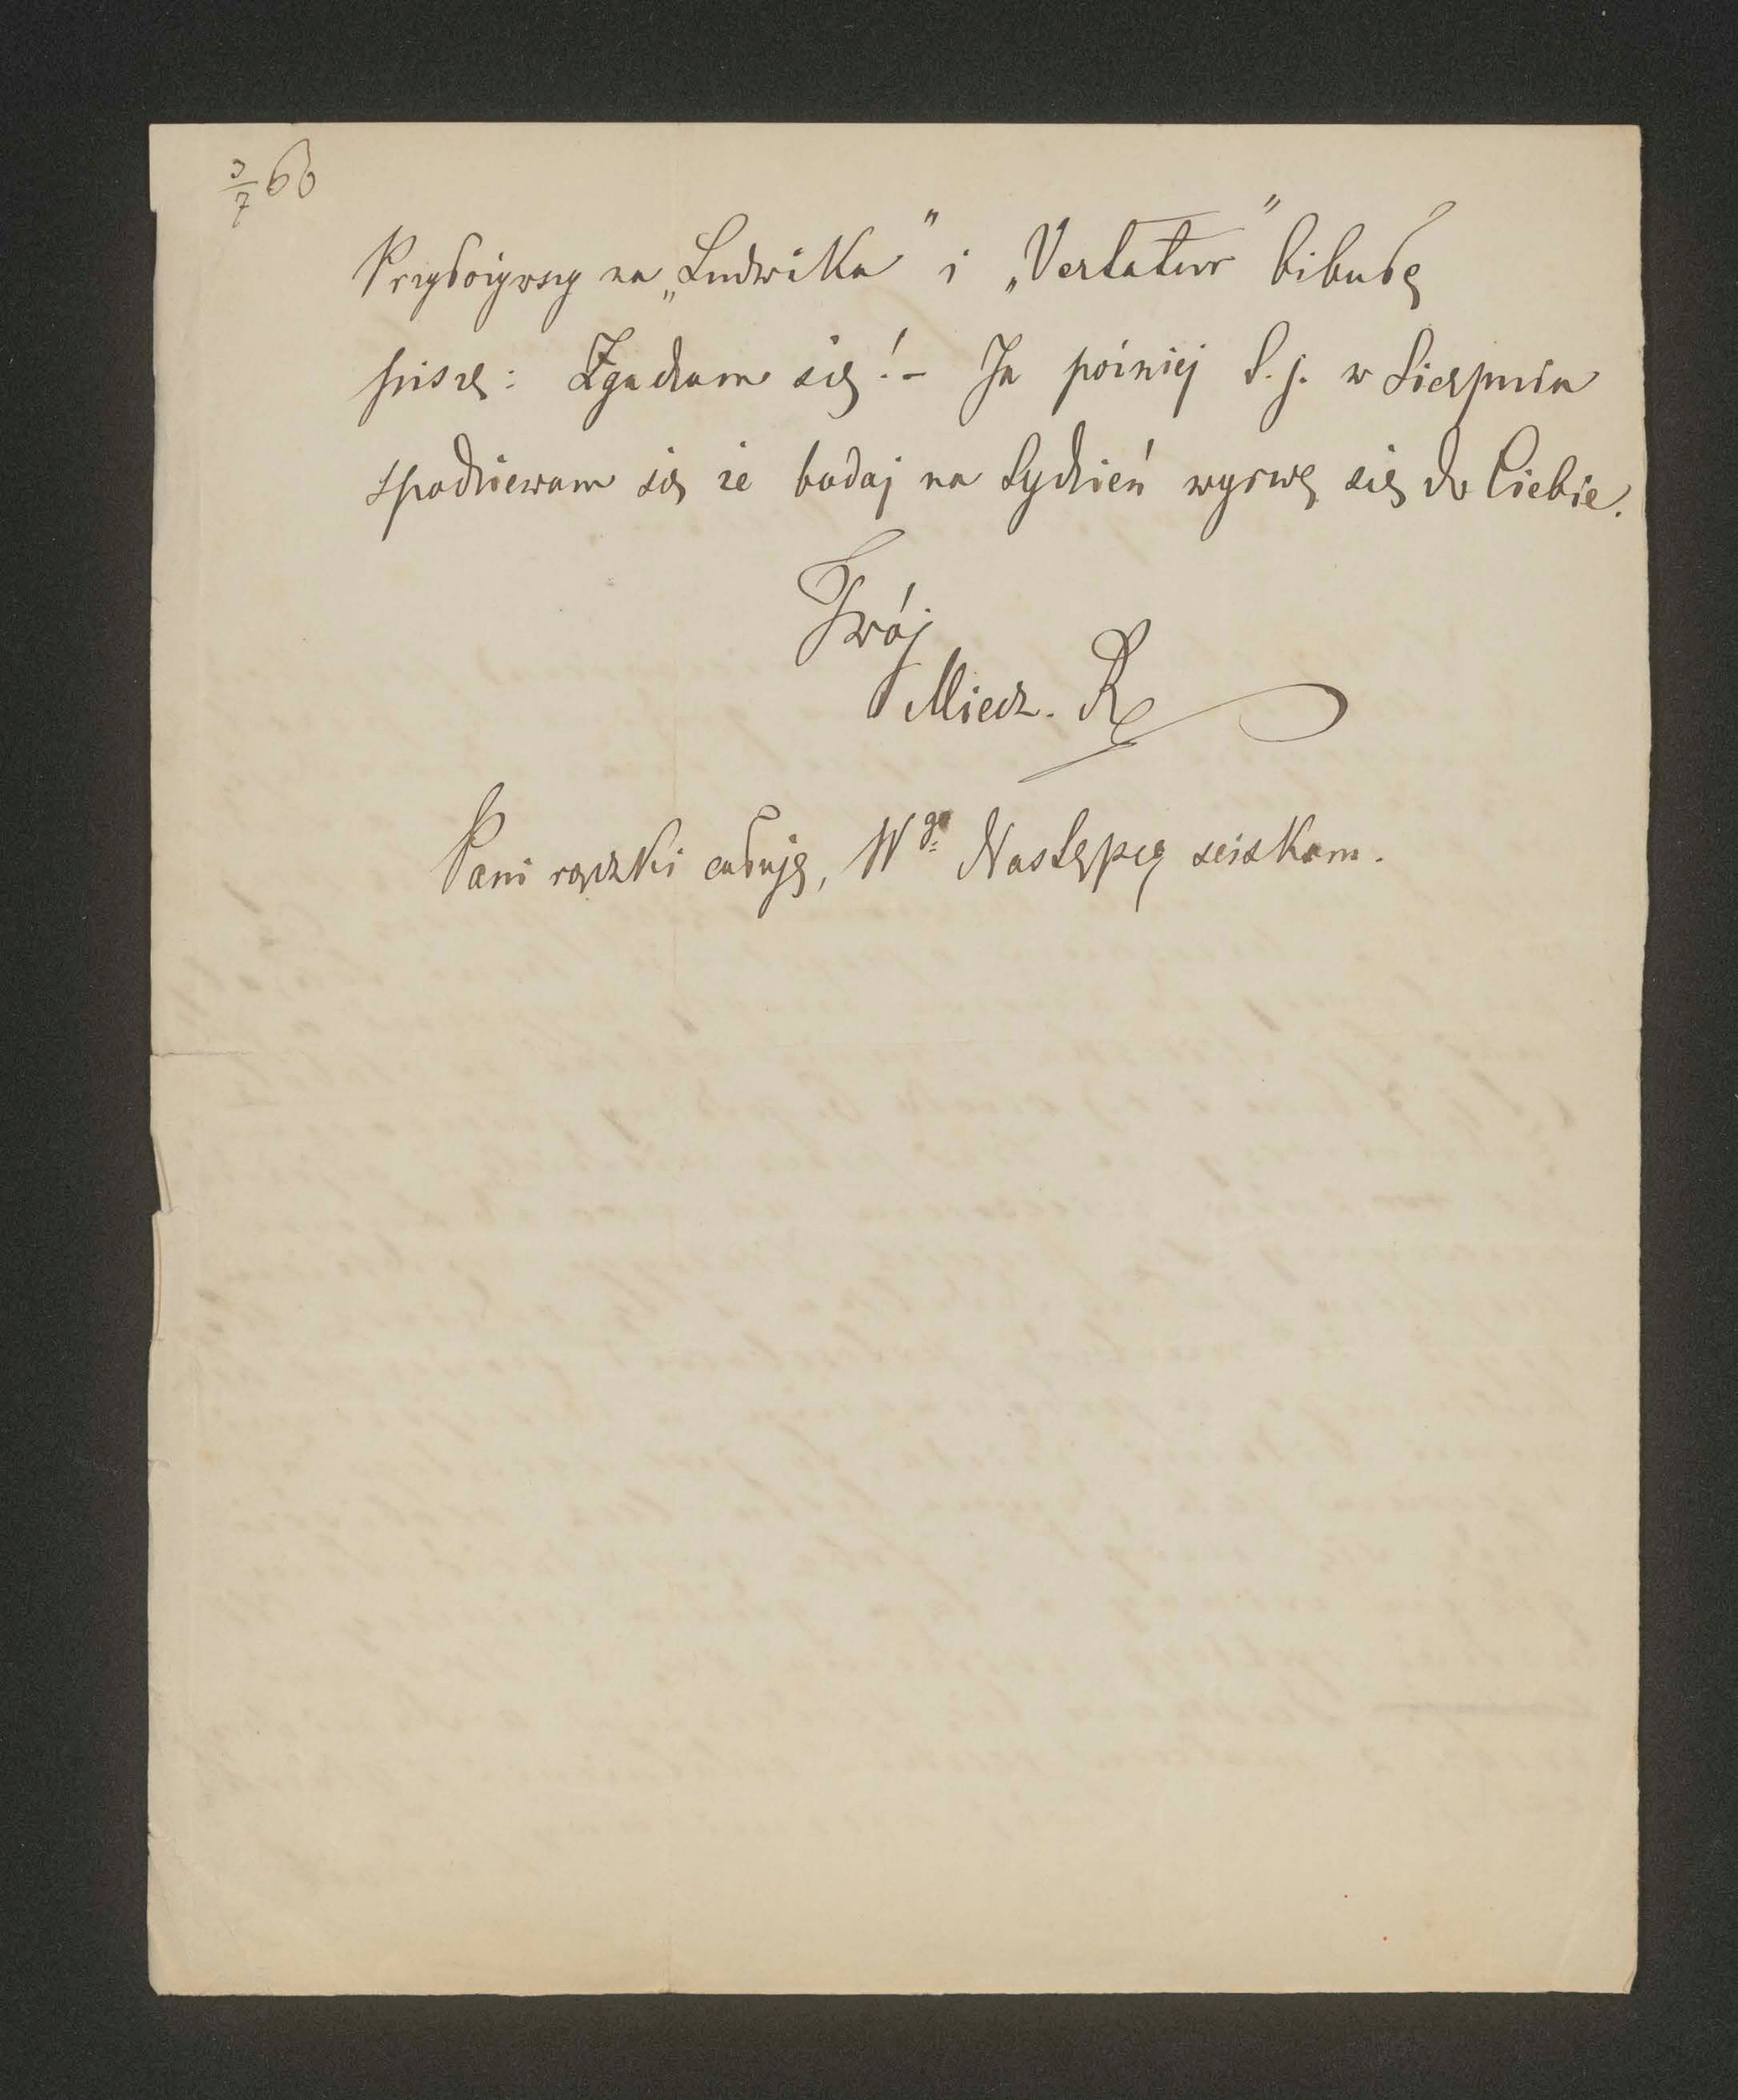 3/7 66
Przyłożywszy na „Ludwika" i „Vertatur" bibułę
piszę: Zgadzam się! – Ja później t. j. w Sierpniu
spodziewam się że bodaj na tydzień wyrwę się do Ciebie.
Twój
Miecz. R
Pani rączki całuję, Wgo Następcę ściskam.